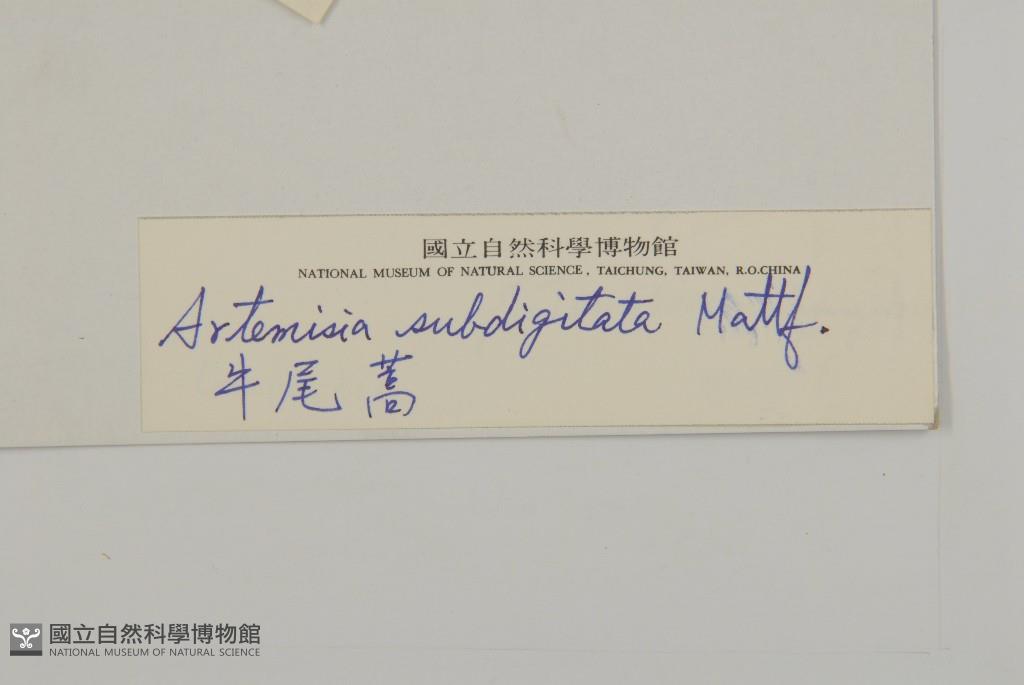 國立自然科學博物館
NATIONAL MUSEUM OF NATURAL SCIENCE, TAICHUNG, TAIWAN, R.O.CHINA
Artemisia subdigitata Mattf.
牛尾蒿
國立自然科學博物館
NATIONAL MUSEUM OF NATURAL SCIENCE